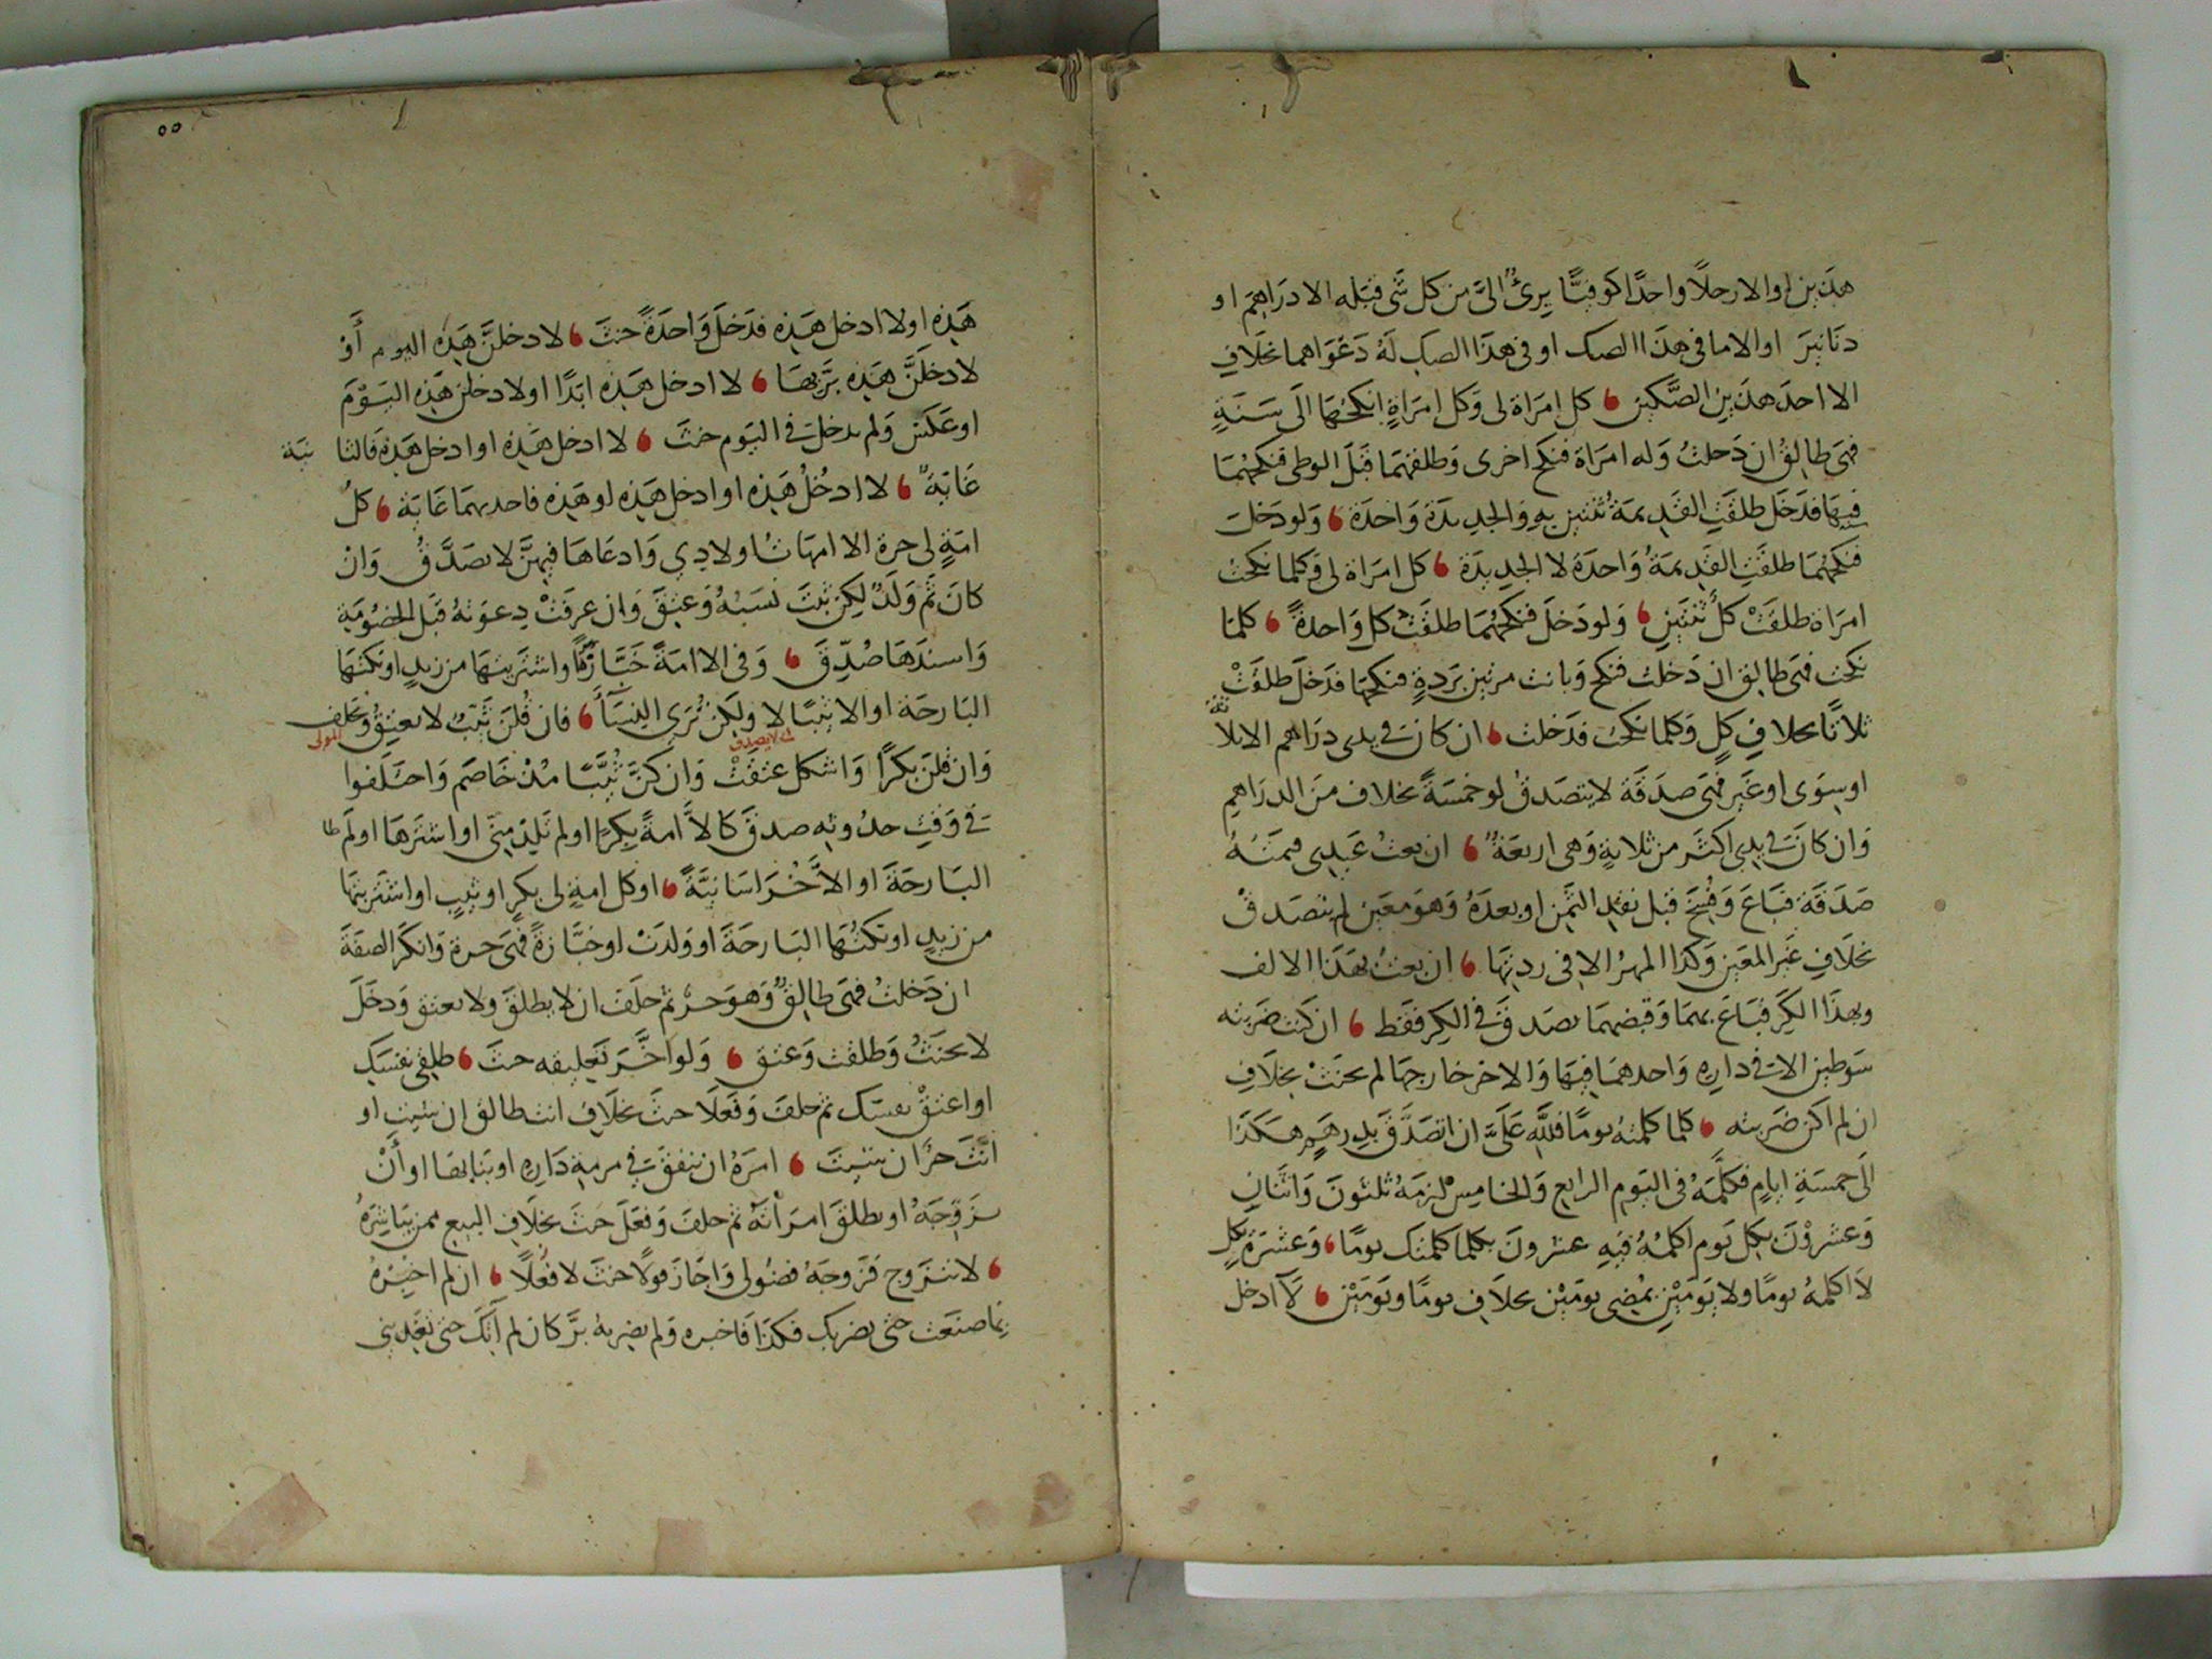 هذين او الا رجلًا واحدًا كوفيًّا برئٌ الىَّ من كل شَى قبَله الا درَاهِمَ او
دنَانيرَ او الا ما فى هذَا الصك او فى هذَا الصك لَهُ دَعْوَاهما بخلَافِ
الا احدَ هذَين الصَّكين ، كل امرَاة لى وَكل امرَاةٍ انكحُهَا الَى سَنَةٍ
فهىَ طالِقٌ ان دَخلتُ وَله امرَاة فنكحَ اخرى وَطلقهمَا قبَلَ الوطى فنكحَهُمَا
فيهَا فدَخَل طلقَتِ القدِيمَةُ ثنتين بهِ وَالجديدَة وَاحدَة ، وَلو دَخلَ
فنكحَهُمَا طلقَتِ القَدِيمَةُ وَاحدَة لا الجدِيدَة ، كل امرَاة لى وَكلما نكحتُ
امرَاة طلقَتْ كلٌ ثنتَينِ ، وَلو دَخلَ فنكحَهُمَا طلقَتْ كل وَاحدةً ، كلمَا
نكحت فهىَ طالِق ان دَخلت فنكح وَبانت مرتين برَدةٍ فنكحهَا فدَخلَ طلقَتْ
ثلاثًا بخلافِ كلٍ وَكلما نكحت فدَخلت ، ان كانَ فى يدى درَاهم الا ثلاثة
او سِوَى او غَير فهىَ صدَقَة لا يتصَدقُ لو خمسَةً بخلاف منَ الدرَاهِمِ
وَان كانَ فى يدِى اكثَر من ثلاثةٍ وَهى اربعَةٌ ، ان بعتُ عَبدِى فثمنُهُ
صَدَقَة فبَاعَ وَفُسِخَ قبل نقدِ الثمَن او بعدَهُ وَهوَ معَين لم يتصَدقْ
بخلَافِ غَير المعَين وَكذَا المهرُ الا فى ردتِهَا ، ان بعتُ بهَذَا الالف
وبهذَا الكرِّ فبَاعَ بهمَا وَقبضهمَا تصَدقَ فى الكر فقَط ، ان كنت ضَربته
سَوطين الا فى دارِهِ وَاحدهمَا فيهَا وَالاخر خارجهَا لم يحنَثْ بخلَافِ
ان لم اكن ضَربته ، كلما كلمتهُ يومًا فللَّهِ عَلىَّ ان اتصَدَّقَ بدِرهَمٍ هكَذَا
الَى خمسَةِ ايامٍ فكَلَّمَهُ فى اليَوم الرابع وَالخامِسِ لزمَهُ ثلثونَ وَاثنَانِ
وَعشروْنَ بكل يَوم اكلمُهُ فيهِ عشرونَ بكلما كلمتك يومًا ، وَعشرَة بكل
لا اكلمهُ يومًا ولا يَومَيْنِ بمُضِى يومَيْن بخلَافِ يومًا ويَومَيْن ، لَا ادخل
٥٥
هَذِهِ او لا ادخل هَذِه فدَخلَ وَاحدَةً حنثَ ، لادخلنَّ هَذِهِ اليوم أَوْ
لادخلَنَّ هَذِه برَّ بهَا ، لا ادخل هَذِه ابَدًا او لادخلن هَذِه اليَوْمَ
او عَكَسَ وَلم يدخل فى اليَوم حنثَ ، لا ادخل هَذِهِ او ادخل هَذِهِ فالثانيَة
غَايَةٌ ، لا ادخُلُ هَذِه او ادخل هَذِه او هَذِه فاحديهمَا غَايَة ، كلُ
امَةٍ لى حرة الا امهَاتُ اولادِى وَادعَاهَا فيهنَّ لا يصَدَّقُ وَانْ
كانَ ثَمَّ وَلَدٌ لكِن ثبتَ نسَبُهُ وَعتِقَ وَان عرفَتْ دِعوَتهُ قبَل الخصُومَةِ
وَاسندَهَا صُدِّقَ ، وَفى الا امَةً خبَّازَةً او اشترَيتهَا من زيدٍ او نكحتهَا
البَارحَة او الا ثيبًا لا وَلكِن تُرَى النِّسَآءَ ، فان قُلنَ ثيِّبٌ لا يعتِقُ وَيحلف المَولى
وَان قلنَ بكرًا وَاشكل عتقَتْ وَان كنَّ ثيِّبًا مُذْ خَاصَم وَاختَلَفوا
فى وَقتِ حدُوثِهِ صدقَ كالاَّ امةً بِكرًا او لم تَلِدْ مِنِّى او اشترهَا او لم اطا
البَارحَةَ او الاَّ خُرَاسَانيَّةً ، او كل امةٍ لى بكرٍ او ثيبٍ او اشتَريتهَا
من زيدٍ او نكحُتُهَا البَارحَةَ او وَلدَتْ او خبَّازةً فهىَ حرة وَانكرَ الصفَةَ
ان دَخلتُ فهىَ طالِقٌ وَهوَ حرٌّ ثم حلَفَ ان لا يطلقَ ولا يعتق وَدخَلَ
لا يحنَثُ وَطلقت وَعتق ، وَلو اخَّرَ تَعليقه حنثَ ، طلقِى نفسَكِ
او اعتقْ نفسَك ثم حلفَ وَفعَلَا حنثَ بخلَافِ انت طالق ان شئتِ او
انْتَ حرٌ ان شئتَ ، امرَهُ ان ينفقَ فى مرمةِ دَارِهِ او بنَائِهَا او أَنْ
يزَوِّجَهُ او يطلقَ امرَأتَهُ ثم حلفَ وَفعَلَ حنثَ بخلَافِ البيع ممن يبَاشِرُهُ
، لا يتزوج فزَوجَهُ فضُولى وَاجَازَ قولًا حنثَ لا فعْلًا ، ان لم اخبرْهُ
بمَا صنَعتَ حتى يضربَك فكذَا فاخبره وَلم يضربهُ برَّ كان لم آتِكَ حتى تغَدِّينى
لا يصدق
المولى